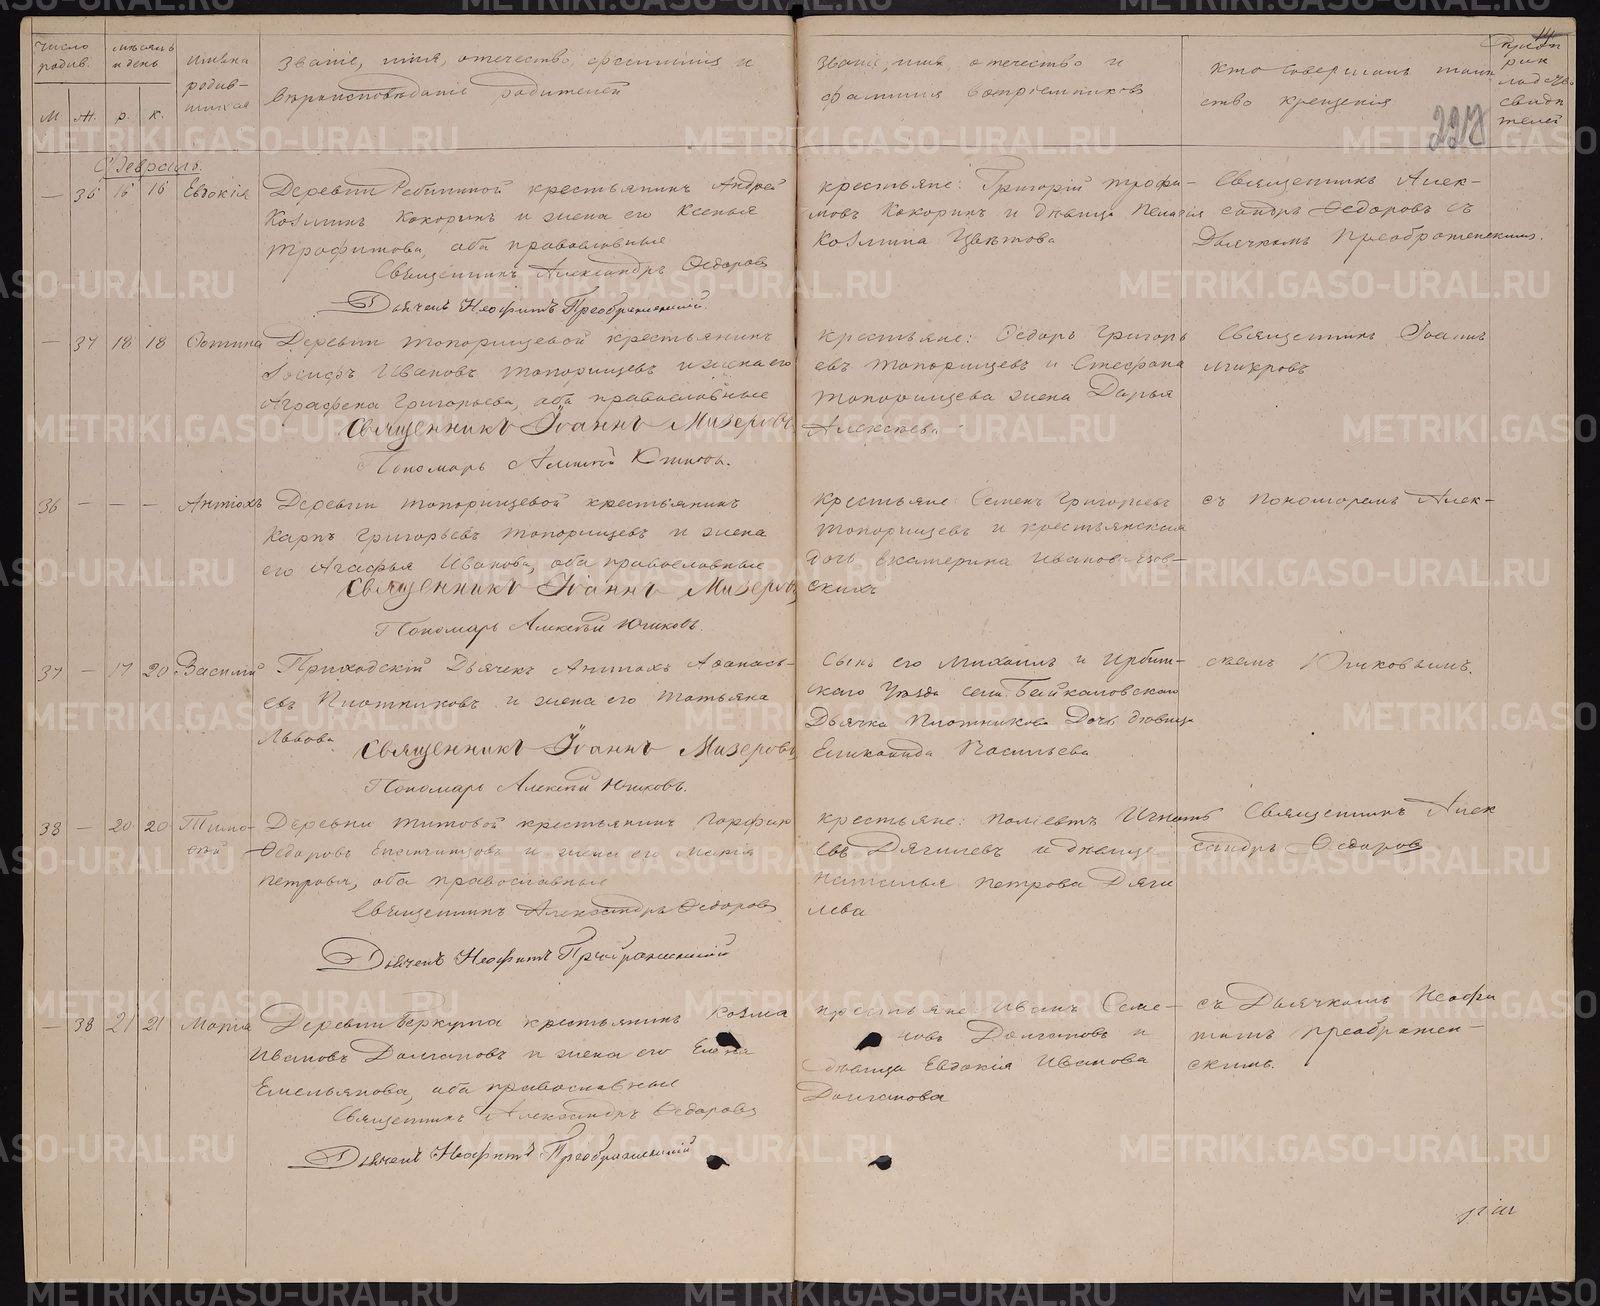 число родив.
мѣсяцъ и день
имена родив-шихся
Званіе, имя, отечество, фамилія и
вѣроисповѣданіе родителей
Званіе, имя, отечество и
фамилія воспріемниковъ
Кто совершалъ таин
ство крещенія
м. ж. р. к.
227
Февраль.
— 36 16 16 Евдокія
Деревни крестьянинъ Андрей
Козминъ Кокоринъ и жена его Ксенья
Трофимова, оба православные
Священникъ Александръ Ѳедоровъ
Дьячекъ Неофитъ Преображенскій.
крестьяне: Григорій Трофи-
мовъ Кокоринъ и дѣвица Пелагія
Козмина Цвѣтова
Священникъ Алек-
сандръ Ѳедоровъ съ
Дьячкомъ Преображенскимъ.
— 37 18 18
Деревни Топорищевой крестьянинъ
Іосифъ Ивановъ Топорищевъ и жена его
Аграфена Григорьева, оба православные
Священникъ Іоаннъ Мизеровъ
Пономарь Алексѣй Юшковъ.
крестьяне: Ѳедоръ Григорь
евъ Топорищевъ и Стефана
Топорищева жена Дарья
Алексѣева
Священникъ Іоаннъ
36 — — — Антіохъ
Деревни Топорищевой крестьянинъ
Карпъ Григорьевъ Топорищевъ и жена
его Агафья Иванова, оба православные
Священникъ Іоаннъ Мизеровъ
Пономарь Алексѣй Юшковъ.
Крестьяне Семенъ Григорьевъ
Топорищевъ и крестьянская
дочь Екатерина Иванова
скихъ
съ пономаремъ Алек-
37 — 17 20 Василій
Приходскій Дьячекъ Антіохъ Аѳанась-
евъ Плотниковъ и жена его Татьяна
Львова
Священникъ Іоаннъ Мизеровъ
Пономарь Алексѣй Юшковъ.
Сынъ его Михаилъ и Ирбит-
скаго Уѣзда села Байкаловскаго
Дьячка Плотникова Дочь дѣвица
Еликонида Васильева
сѣемъ Юшковымъ.
38 — 20 20 Тимо-
ѳей
Деревни Титовой крестьянинъ Порфирій
Ѳедоровъ и жена его Марія
Петрова, оба православные
Священникъ Александръ Ѳедоровъ
Дьячекъ Неофитъ Преображенскій
крестьяне: Поліевктъ Игнать
евъ Дягилевъ и дѣвица
Наталья Петрова Дяги
лева
Священникъ Алек
сандръ Ѳедоровъ
— 38 21 21 Марія
Деревни Беркута крестьянинъ Козма
Ивановъ Долгановъ и жена его Елена
Емельянова, оба православные
Священникъ Александръ Ѳедоровъ
Дьячекъ Неофитъ Преображенскій
крестьяне Иванъ Семе-
новъ Долгановъ и
дѣвица Евдокія Иванова
Долганова
съ Дьячкомъ Неофи
томъ Преображен-
скимъ.
METRIKI.GASO-URAL.RU